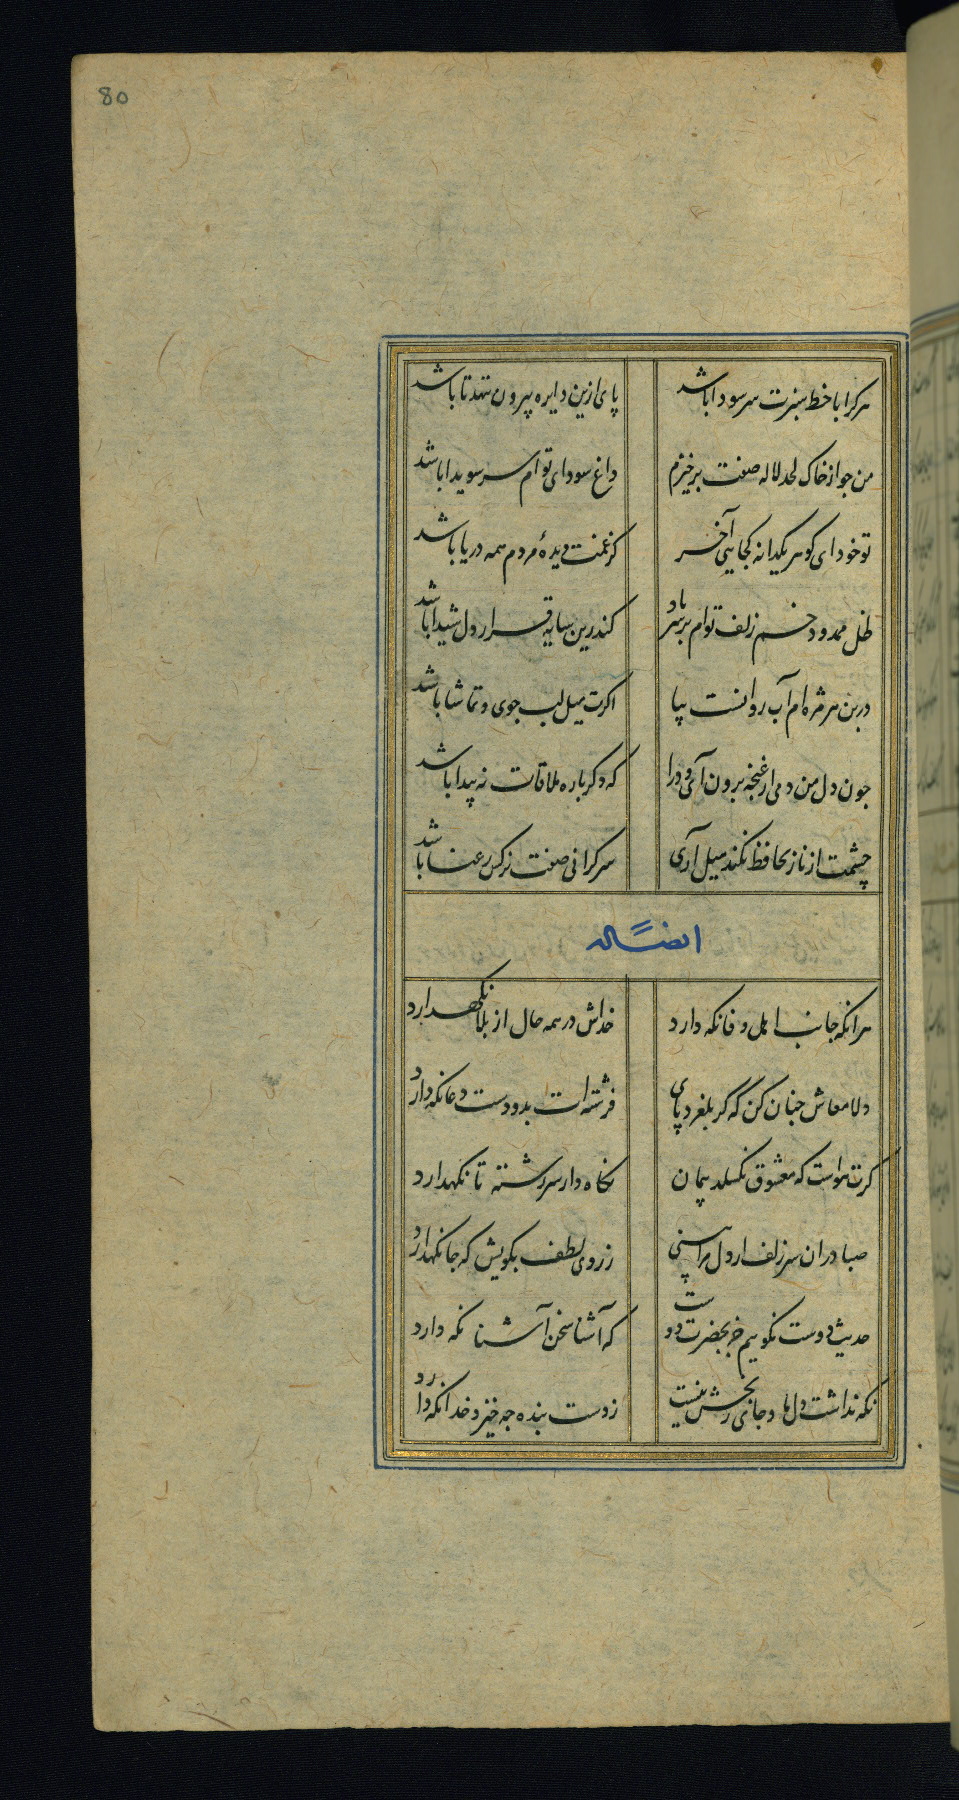 80
هرکرا با خط سبزت سر سودا باشد
پای ازین دایره بیرون ننهد تا باشد
من جو از خاک لحد لاله صفت برخیزم
داغ سودای توام سر سویدا باشد
تو خود ای کوهر یکدانه کجایی آخر
کز غمت دیدهٔ مردم همه دریا باشد
ظل ممدود خم زلف توام بر سر باد
کندرین سایه قرار دل شیدا باشد
در بن هر مژه ام آب روانست بیا
اکرت میل لب جوی و تماشا باشد
جون دل من دمی از غنجه برون آی و درا
که دکر باره ملاقات نه پیدا باشد
چشمت از ناز بحافظ نکند میل آری
سرکرانی صفت نرکس رعنا باشد
ایضاً له
هر انکه جانب اهل وفا نکه دارد
خداش در همه حال از بلا نکهدارد
دلا معاش جنان کن که کر بلغزد پای
فرشته ات بدو دست دعا نکه دارد
کرت هواست که معشوق نکسلد پیمان
نکاه دار سر رشته تا نکهدارد
صبا دران سر زلف ار دل مرا بینی
ز روی لطف بکویش که جا نکهدارد
حدیث دوست نکویم جز بحضرت دوست
که آشنا سخن آشنا نکه دارد
نکه نداشت دل ما و جای رنجش نیست
ز دست بنده جه خیزد خدا نکه دارد